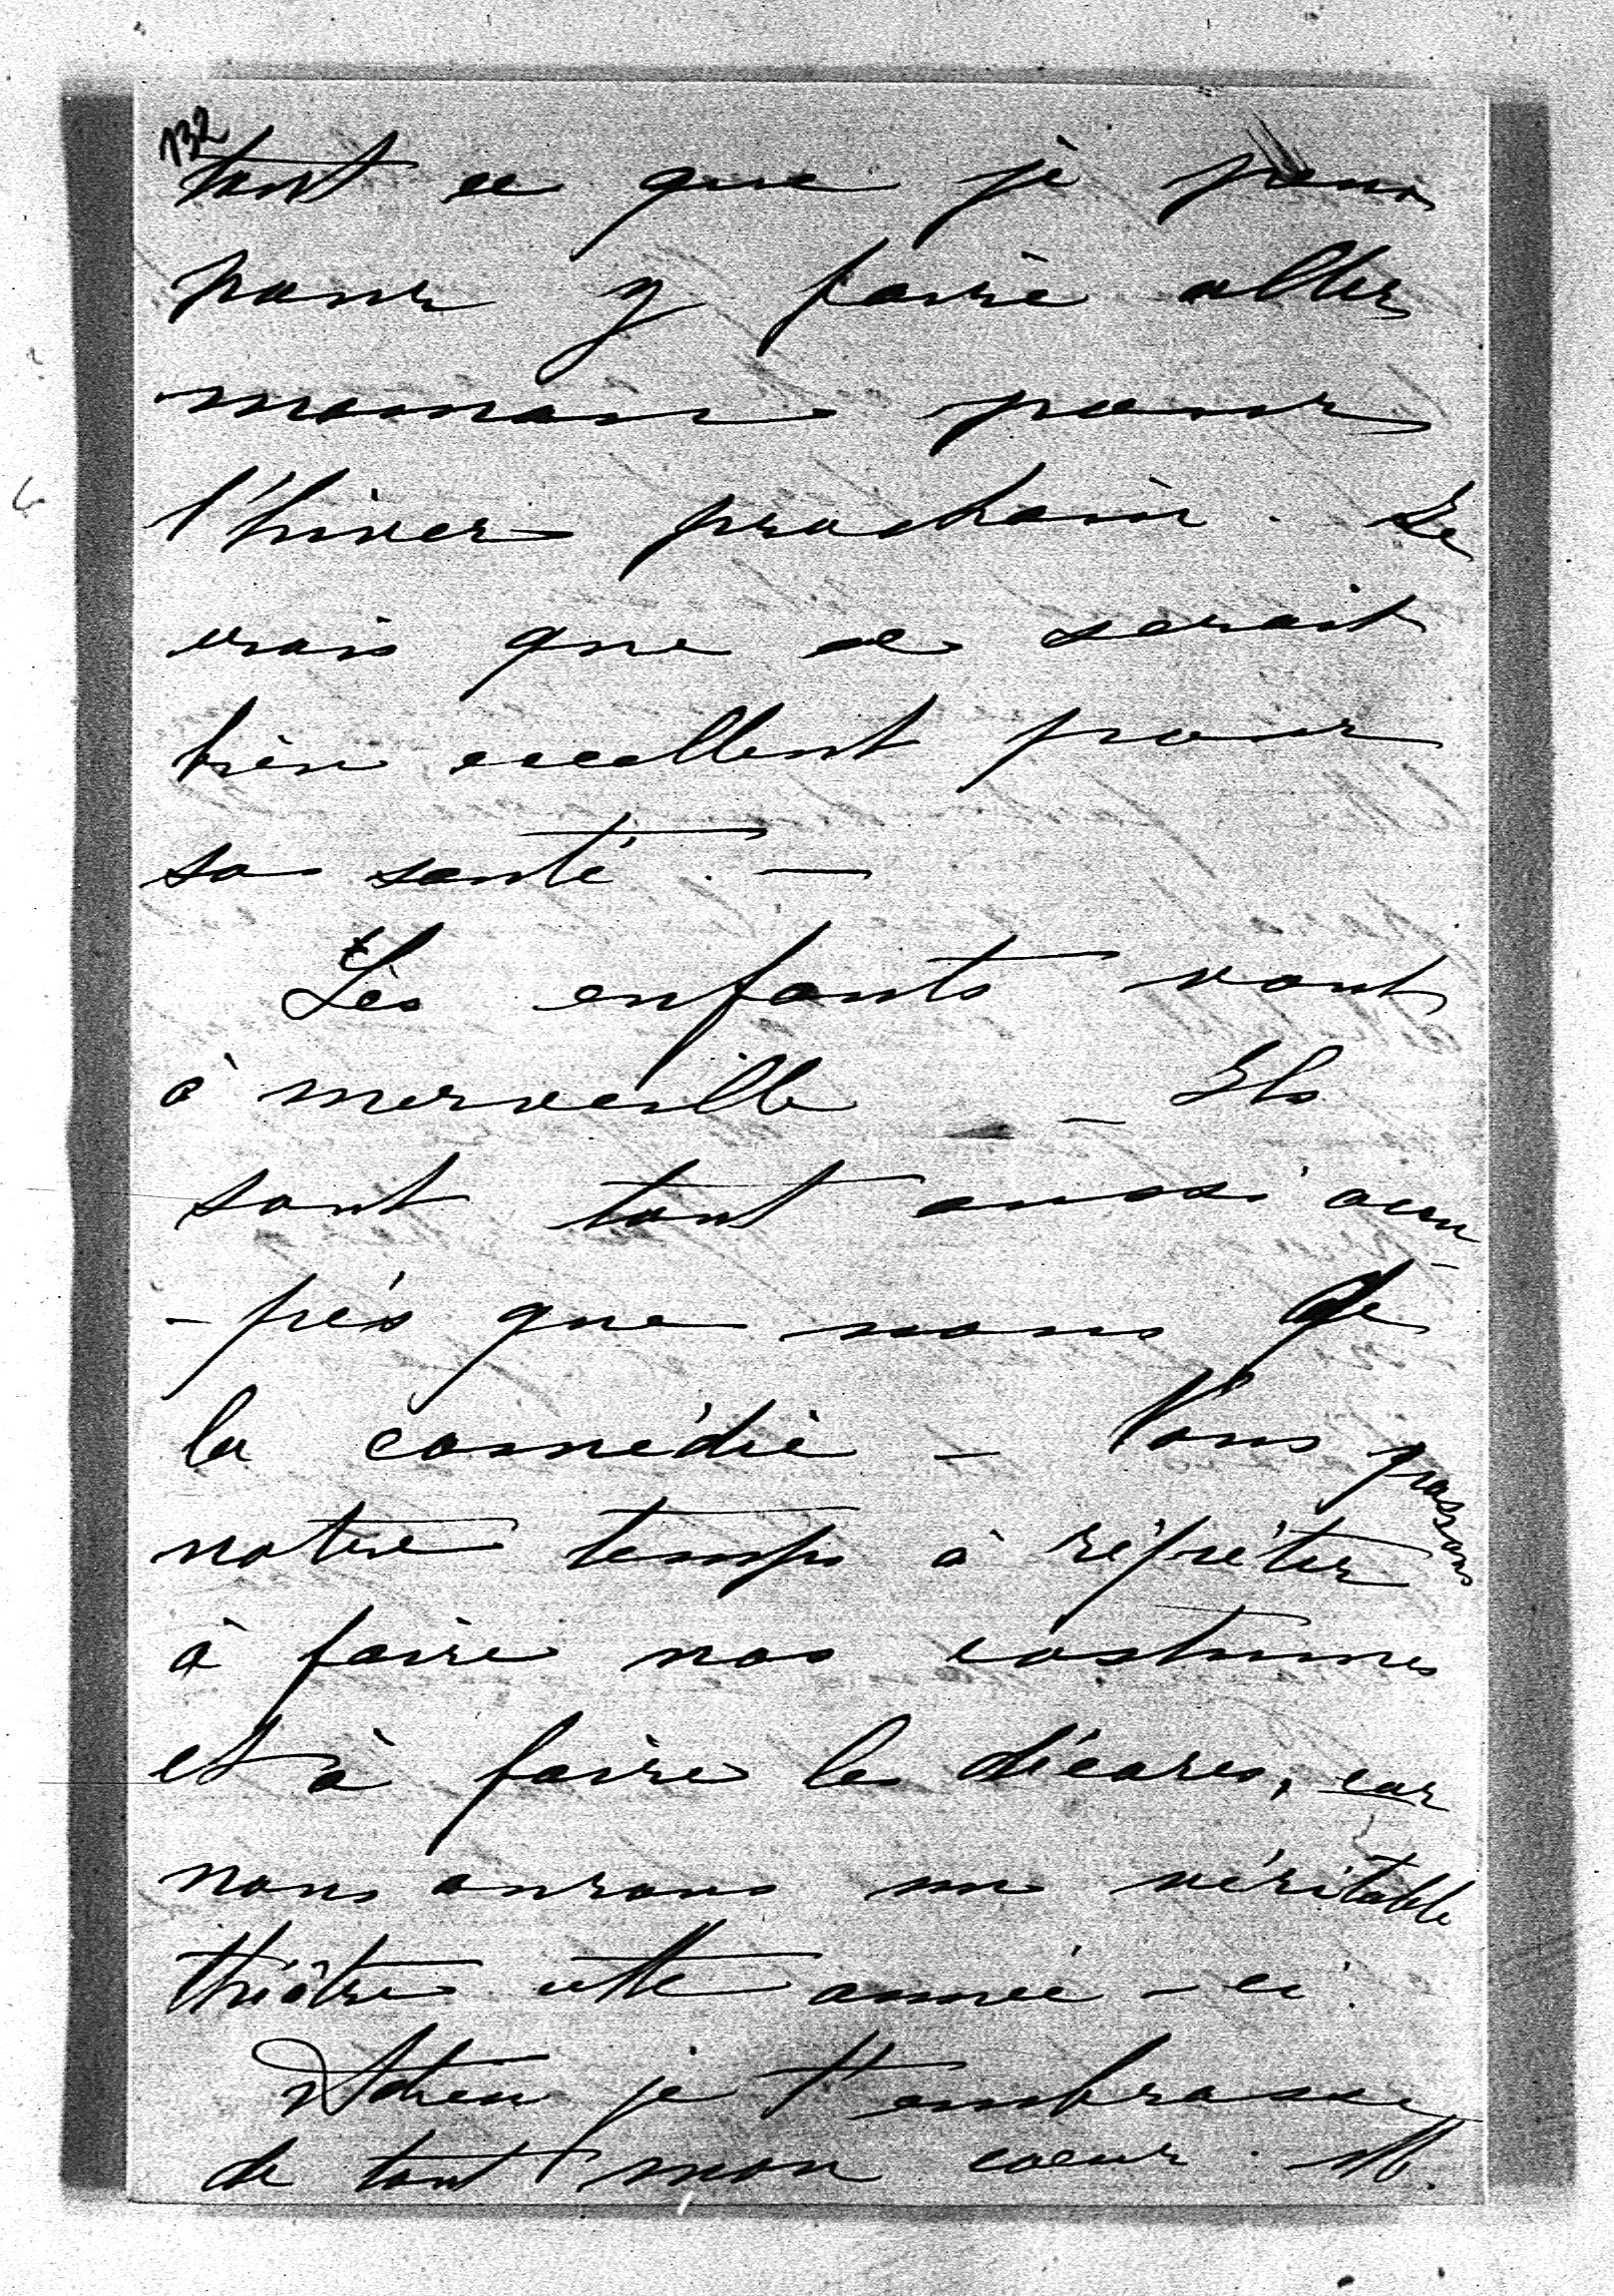 132
tout ce que je peux
pour y faire aller
maman pour
l'hiver prochain. Je
crois que ce serait
bien excellent pour
sa santé. —
Les enfants vont
à merveille _ Ils
sont tout aussi occu
-pés que nous de
la comédie - Nous passons
notre temps à répéter
à faire nos costumes
et à faire les décores, car
nous aurons un véritable
théâtre cette année-ci.
Adieu je t'embrasse
de tout mon coeur. M.